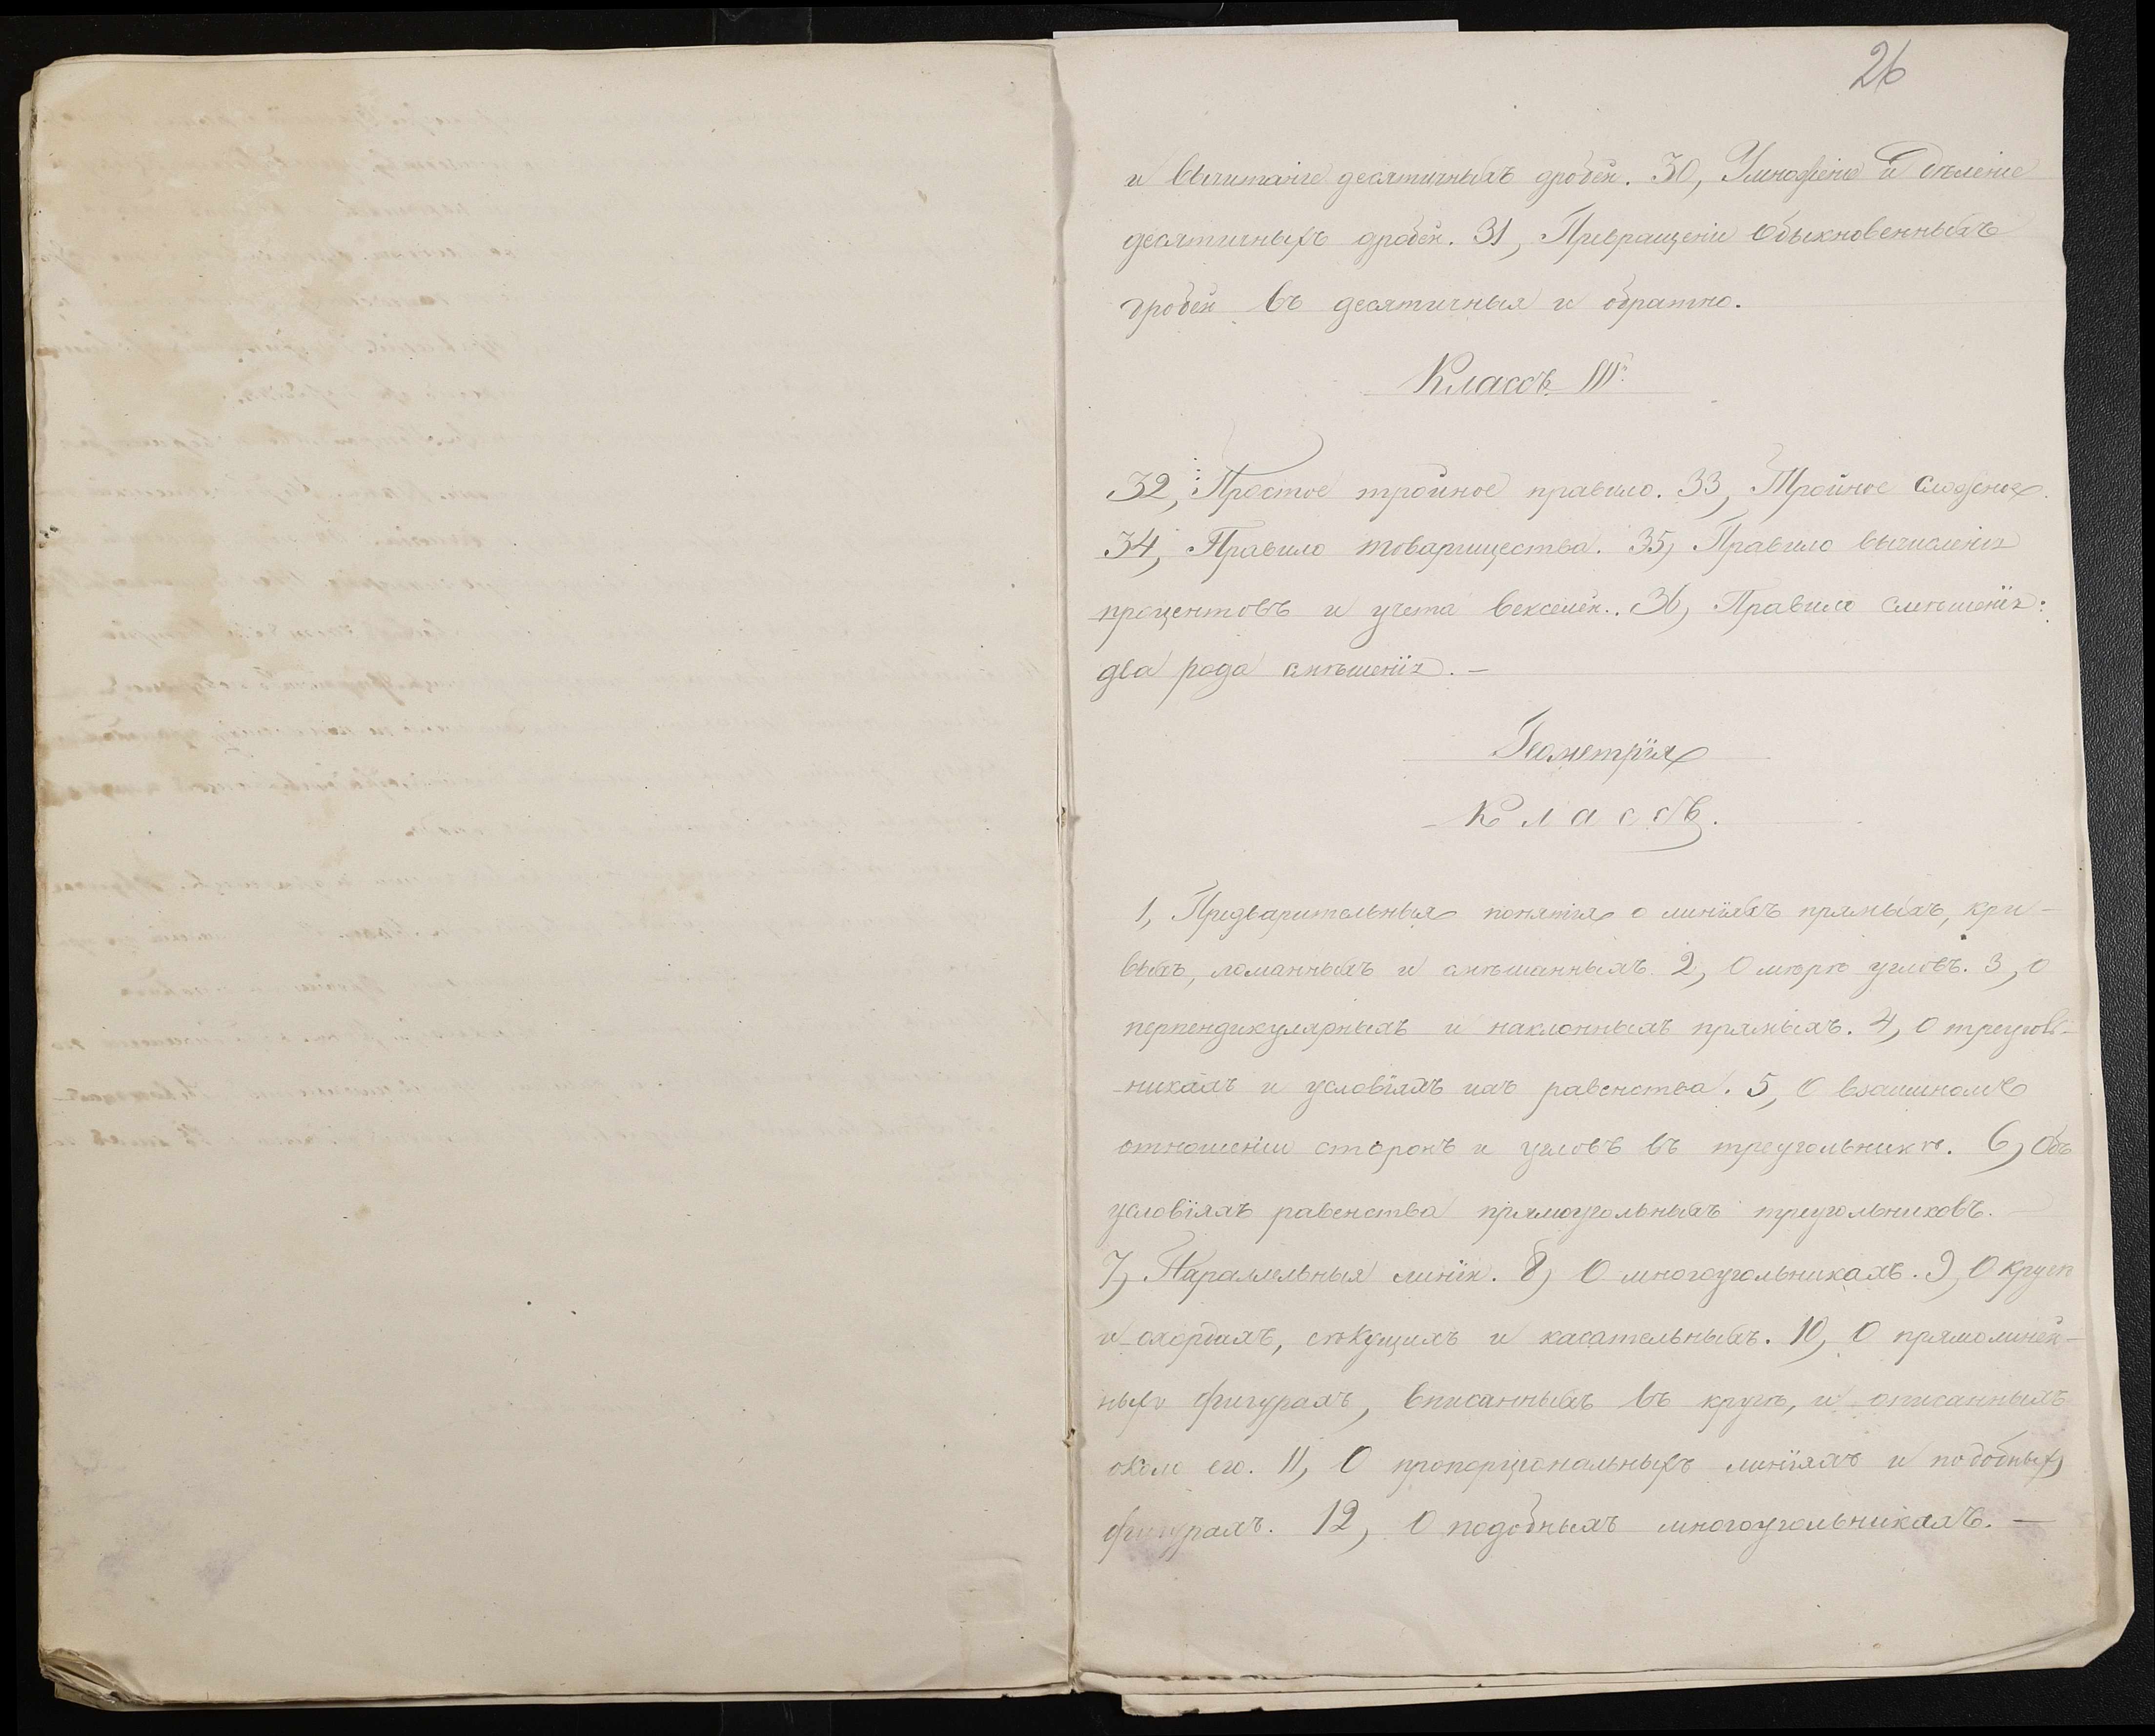 26
и вычитаніе десятичныхъ дробей. 30, Умноженіе и Дѣленіе
десятичныхъ дробей. 31, Превращеніе Обыкновенныхъ
дробей въ десятичныя и обратно.
Классъ III.
32, Простое тройное правило. 33, Тройное сложное.
34, Правило товарищества. 35, Правило вычисленія
процентовъ и учета векселей. 36, Правило смѣшенія:
два рода смѣшенія. —
Геометрія
Классъ.
1, Предварительныя понятія о линіяхъ прямыхъ, кри-
выхъ, ломанныхъ и смѣшанныхъ. 2, О мѣрѣ угловъ. 3, О
перпендикулярныхъ и наклонныхъ прямыхъ. 4, О треуголь-
-никахъ и условіяхъ ихъ равенства. 5, О взаимномъ
отношеніи сторонъ и угловъ въ треугольникѣ. 6, Объ
условіяхъ равенства прямоугольныхъ треугольниковъ. —
7, Параллельныя линіи. 8, О многоугольникахъ. 9, О кругѣ
и хордахъ, сѣкущихъ и касательныхъ. 10, О прямолиней-
ныхъ фигурахъ, вписанныхъ въ кругъ, и описанныхъ
около его. 11, О пропорціональныхъ линіяхъ и подобныхъ
фигурахъ. 12, О подобныхъ многоугольникахъ. —